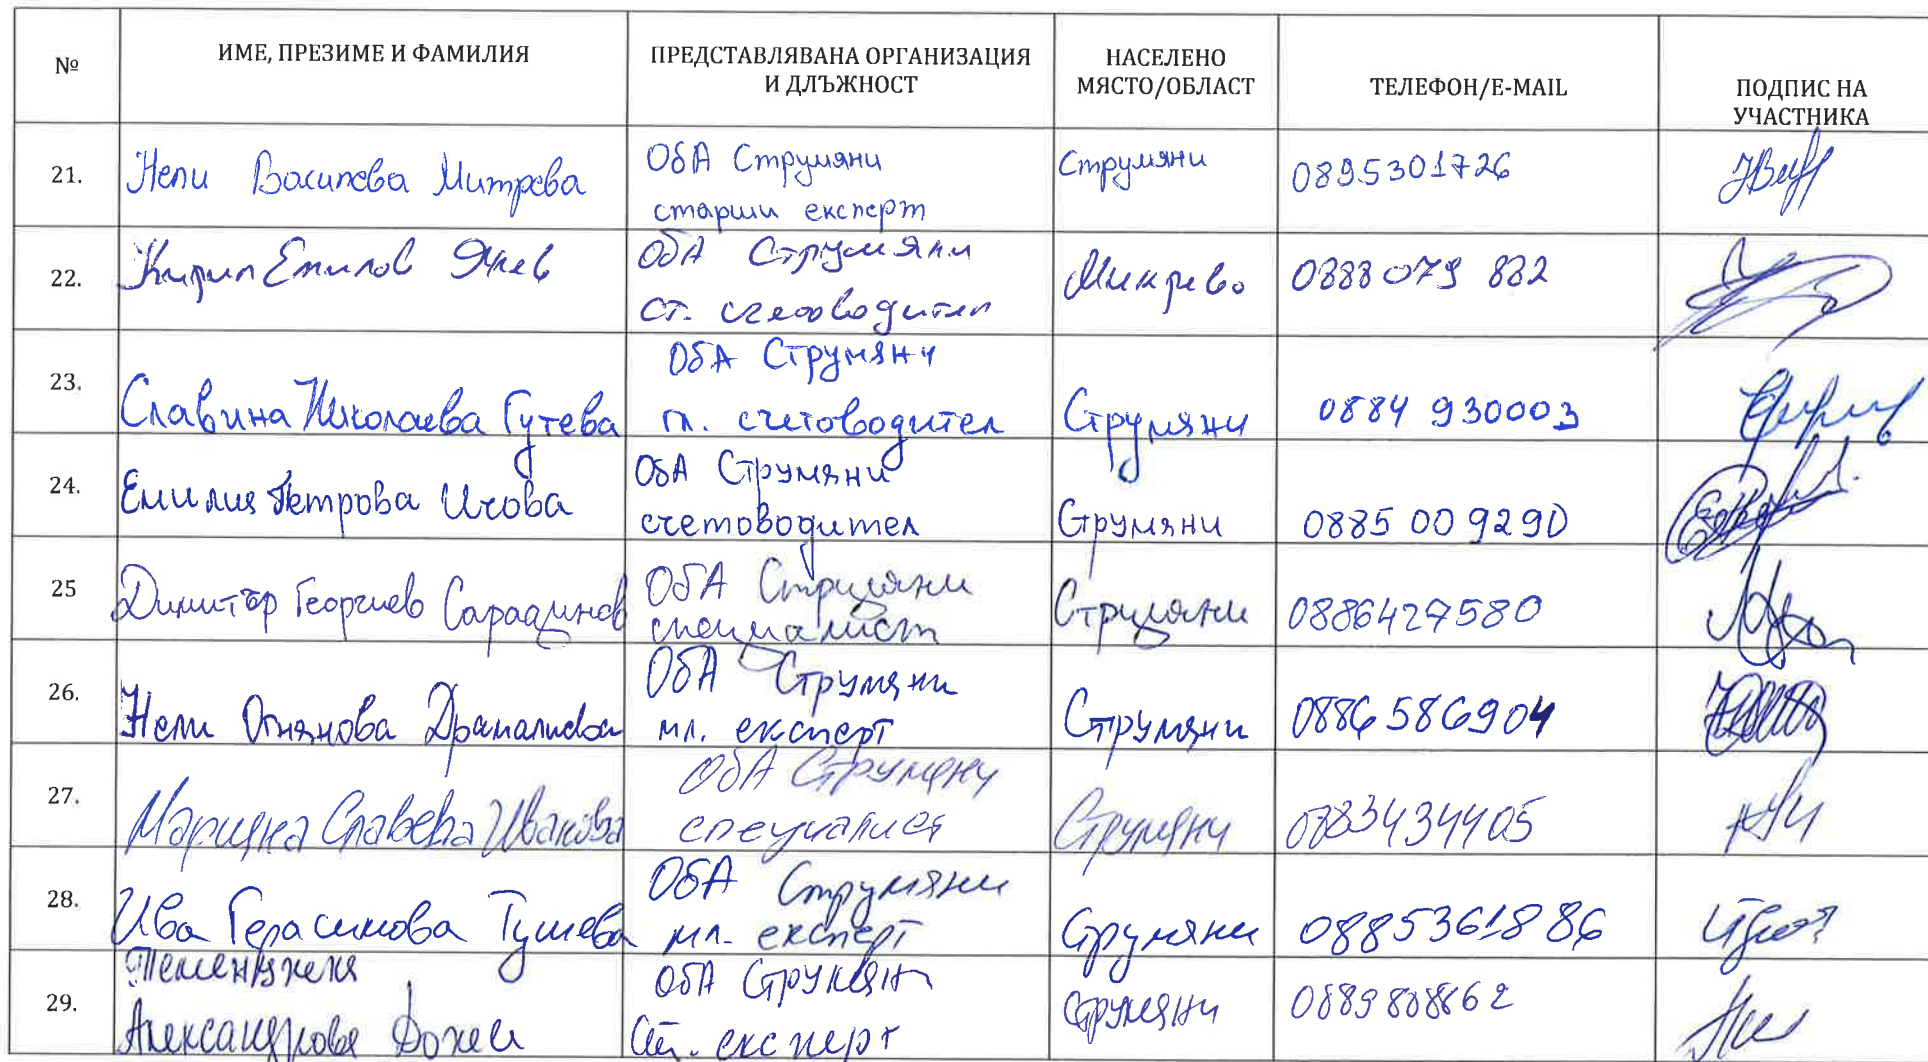 № ИМЕ, ПРЕЗИМЕ И ФАМИЛИЯ ПРЕДСТАВЛЯВАНА ОРГАНИЗАЦИЯ И ДЛЪЖНОСТ НАСЕЛЕНО МЯСТО/ОБЛАСТ ТЕЛЕФОН/E-MAIL ПОДПИС НА УЧАСТНИКА
21. Нели Василева Митрева ОбА Струмяни старши експерт Струмяни 0895301726
22. Кирил Емилов Янев ОбА Струмяни ст. счетоводител Микрево 0888 079 882
23. Славина Николаева Гутева ОбА Струмяни гл. счетоводител Струмяни 0884 930003
24. Емилия Петрова Ичова ОбА Струмяни счетоводител Струмяни 0885 009290
25 Димитър Георгиев Сарадинов ОбА Струмяни специалист Струмяни 0886427580
26. Нели Огнянова Драмалиева ОбА Струмяни мл. експерт Струмяни 0886 586904
27. Марияна Славева Иванова ОбА Струмяни специалист Струмяни 0883434405
28. Ива Герасимова Тушева ОбА Струмяни мл. експерт Струмяни 0885361886
29. Теменужка Александрова ОбА Струмяни ст. експерт Струмяни